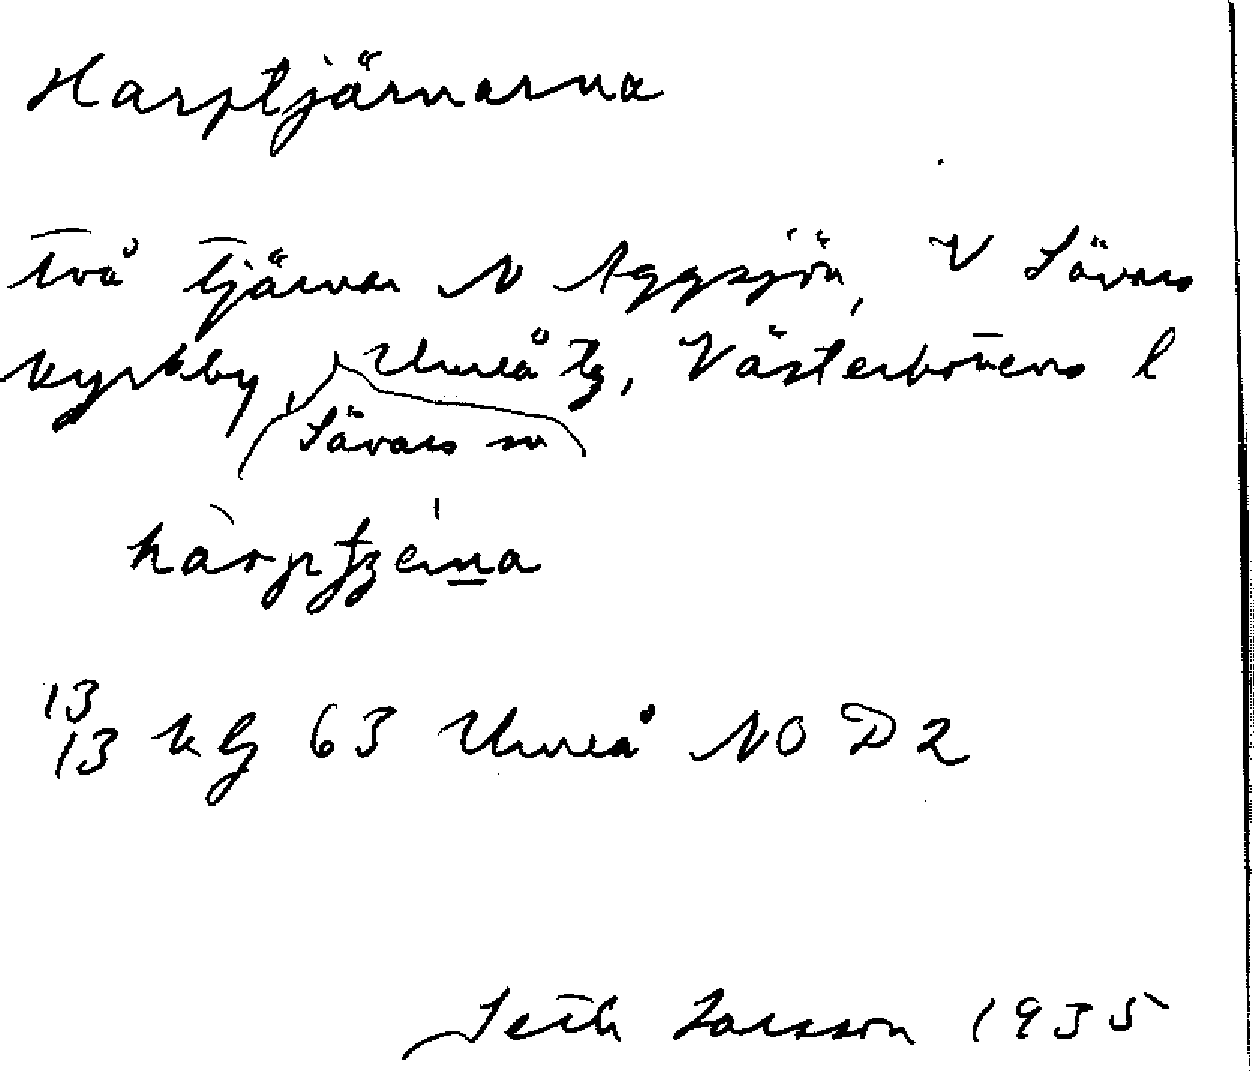 Harptjärnarna
två tjärnar N Aggsjön, V Sävars
kyrkby, Umeå tg, Västerbottens l
Sävars sn
13
13 kg 63 Umeå NO D2
Seth Larsson 1935